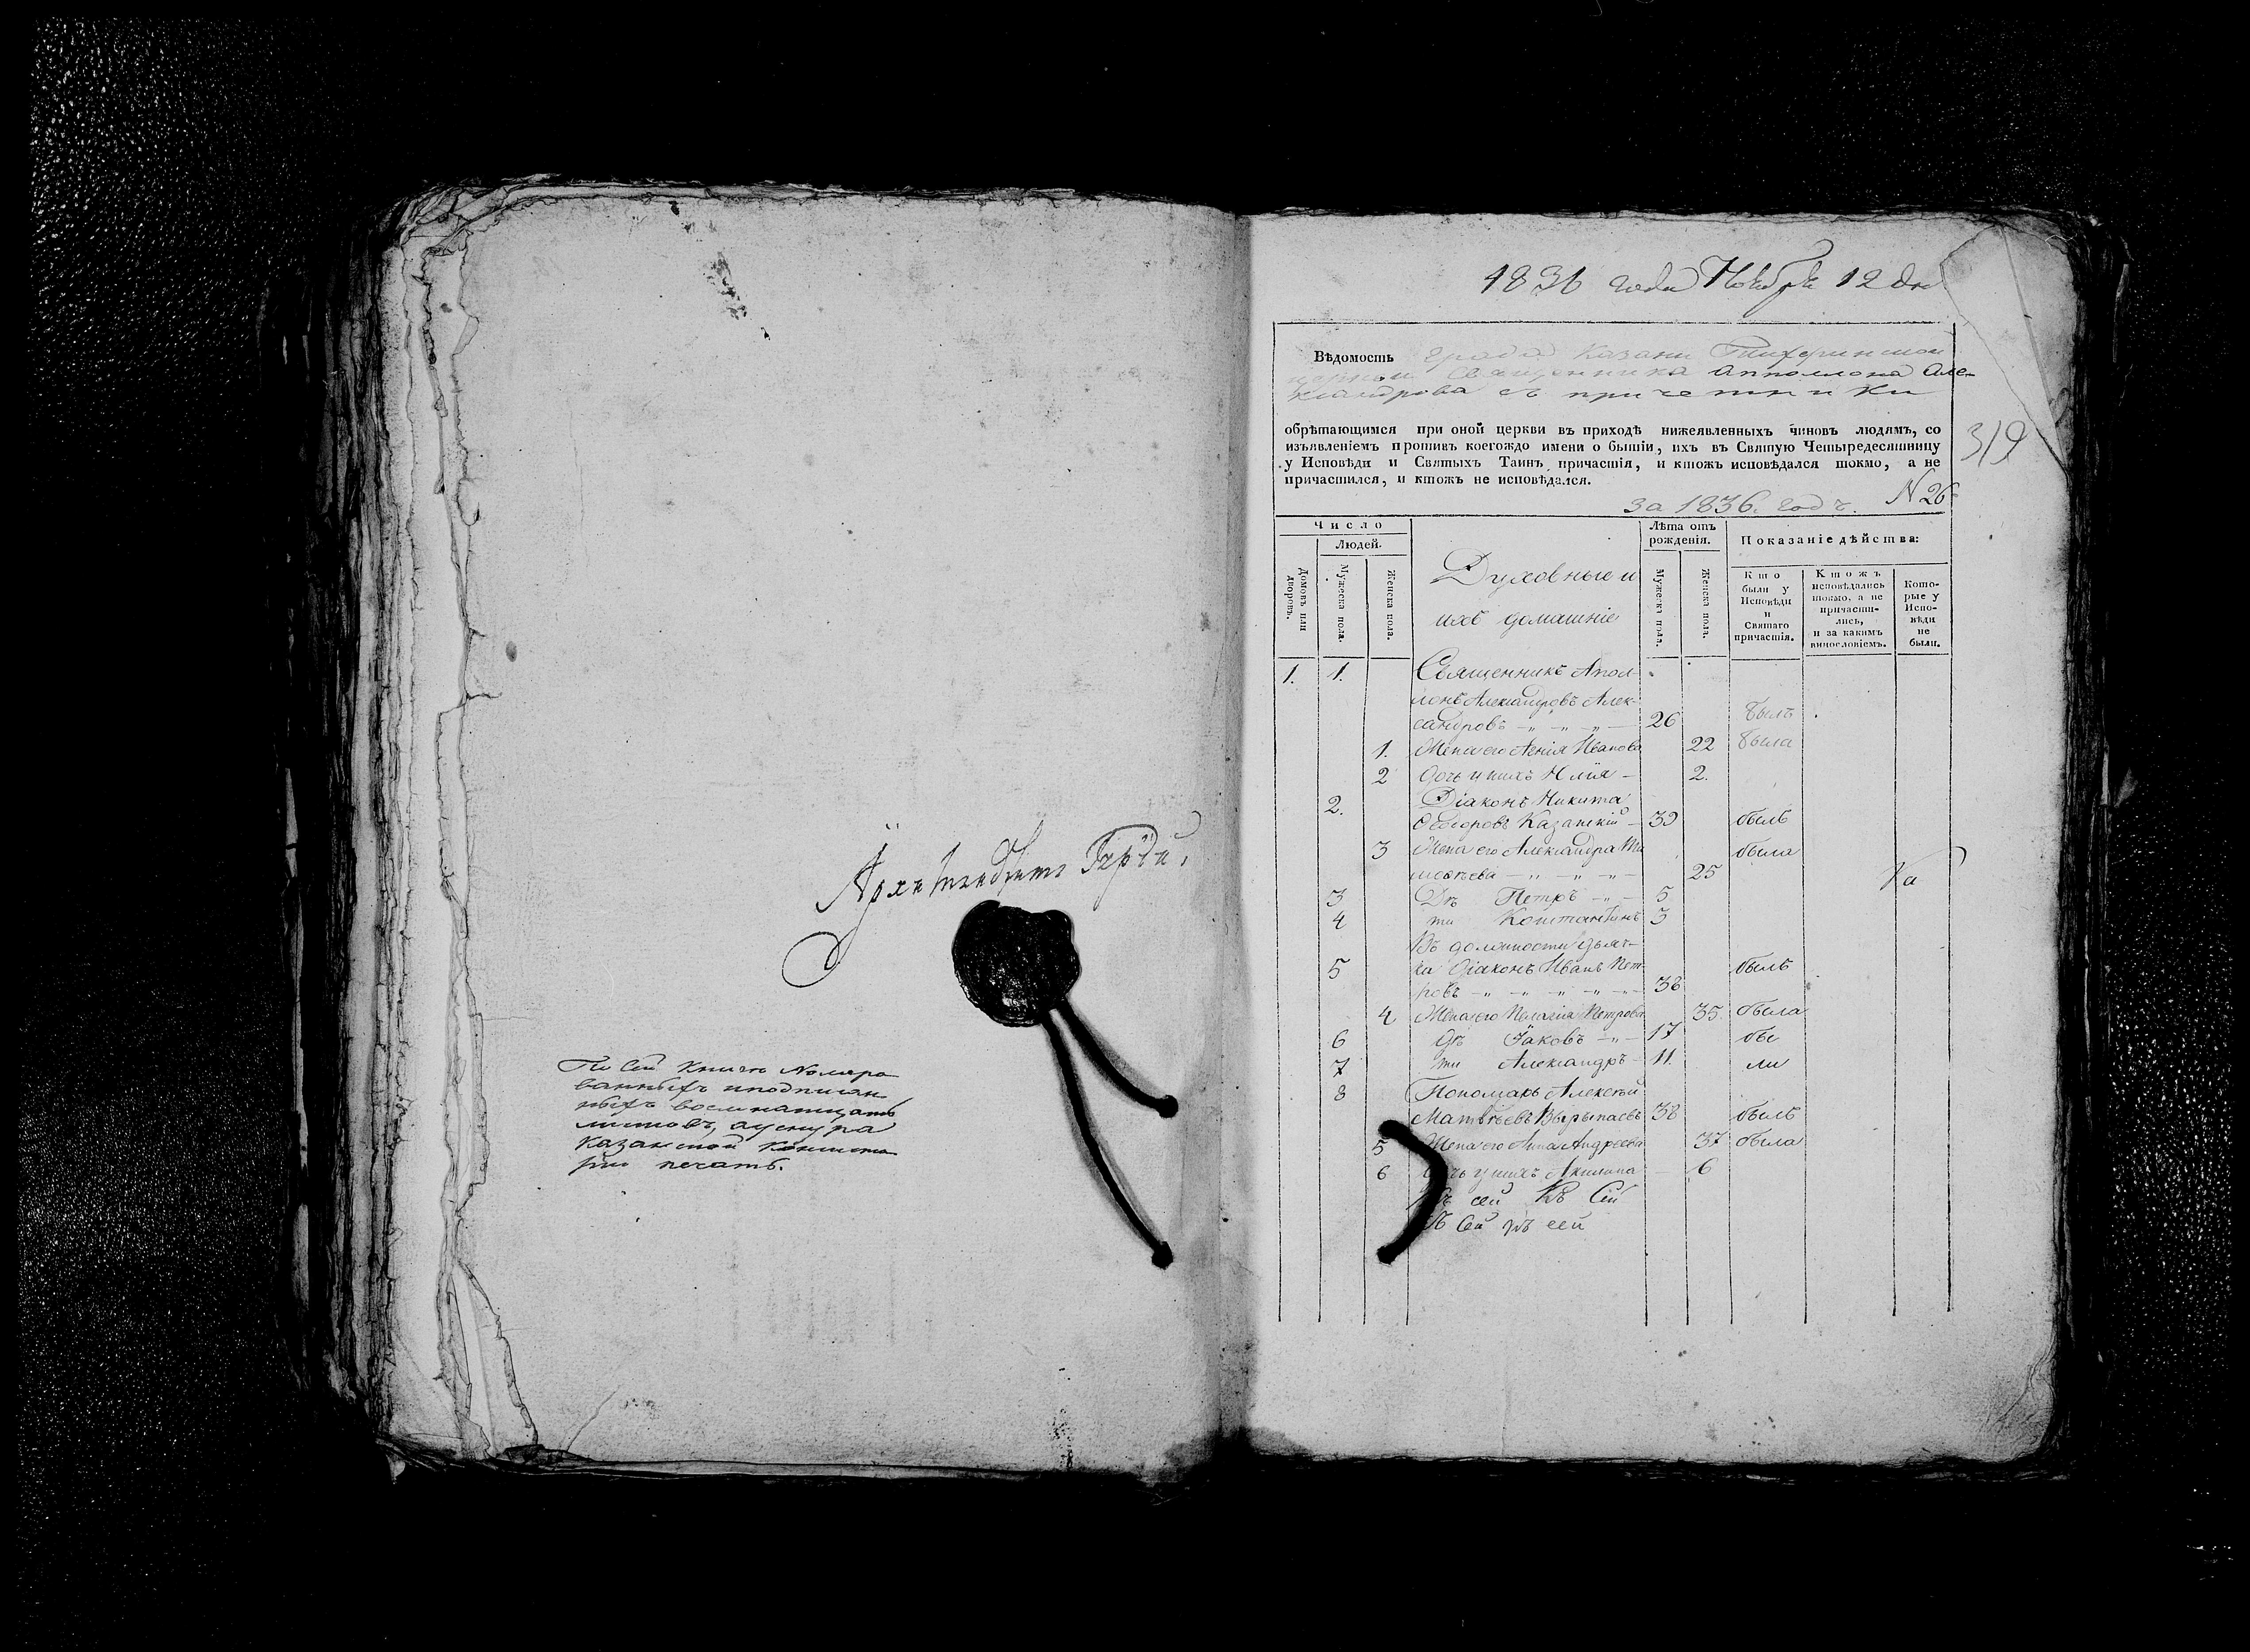 Архимандритъ
Въ сей книгѣ Номеро
ванныхъ и подписан
ныхъ восемнатцать
листовъ, а у снура
Казанской Консисто
ріи печать.
1836 года Ноября 12 дня
Вѣдомость града Казани Тихвинской
церкви Священника Апполлона Але-
ксандрова съ причетники
обрѣтающимся при оной церкви въ приходѣ нижеявленныхъ чиновъ людямъ, со
изъявленіемъ противъ коегождо имени о бытіи, ихъ въ Святую Четыредесятницу
у Исповѣди и Святыхъ Таинъ причастія, и ктожъ исповѣдался токмо, а не
причастился, и ктожъ не исповѣдался.
319
за 1836. годъ. N 26
Число
Людей.
Домовъ или дворовъ.
Мужеска пола.
Женска пола.
Духовные и
ихъ домашніе
Лѣта отъ
рожденія.
Мужеска пола.
Женска пола.
Показаніе дѣйства:
Кто
были у
Исповѣди
и
Святаго
причастія.
Ктожъ
исповѣдались
токмо, а не
причасти-
лись,
и за какимъ
винословіемъ.
Кото-
рые у
Испо-
вѣди
не
были.
1. 1. Священникъ Апол-
лонъ Александровъ Алек-
сандровъ 26 былъ
1. Жена его Иванова 22 была
2 Дочь у нихъ Юлія 2.
2. Діаконъ Никита
Ѳеодоровъ Казанскій 39 былъ
3 Жена его Александра Ти была
моѳеева 25
3 Дѣ Петръ 5
4 ти Константинъ 3
Въ должности дьяч-
5 ка Діаконъ Иванъ Пет- былъ
ровъ 38
4 Жена его Пелагія Петрова 35 была
6 Дѣ Іаковъ 17 бы
7 ти Александръ 11. ли
8 Пономарь Алексѣй
Матвѣевъ Вырыпаевъ 38 былъ
5 Жена его Анна Андреева 37 была
6 Дочь у нихъ Акилина 6
сей Къ Сей
Сей къ сей